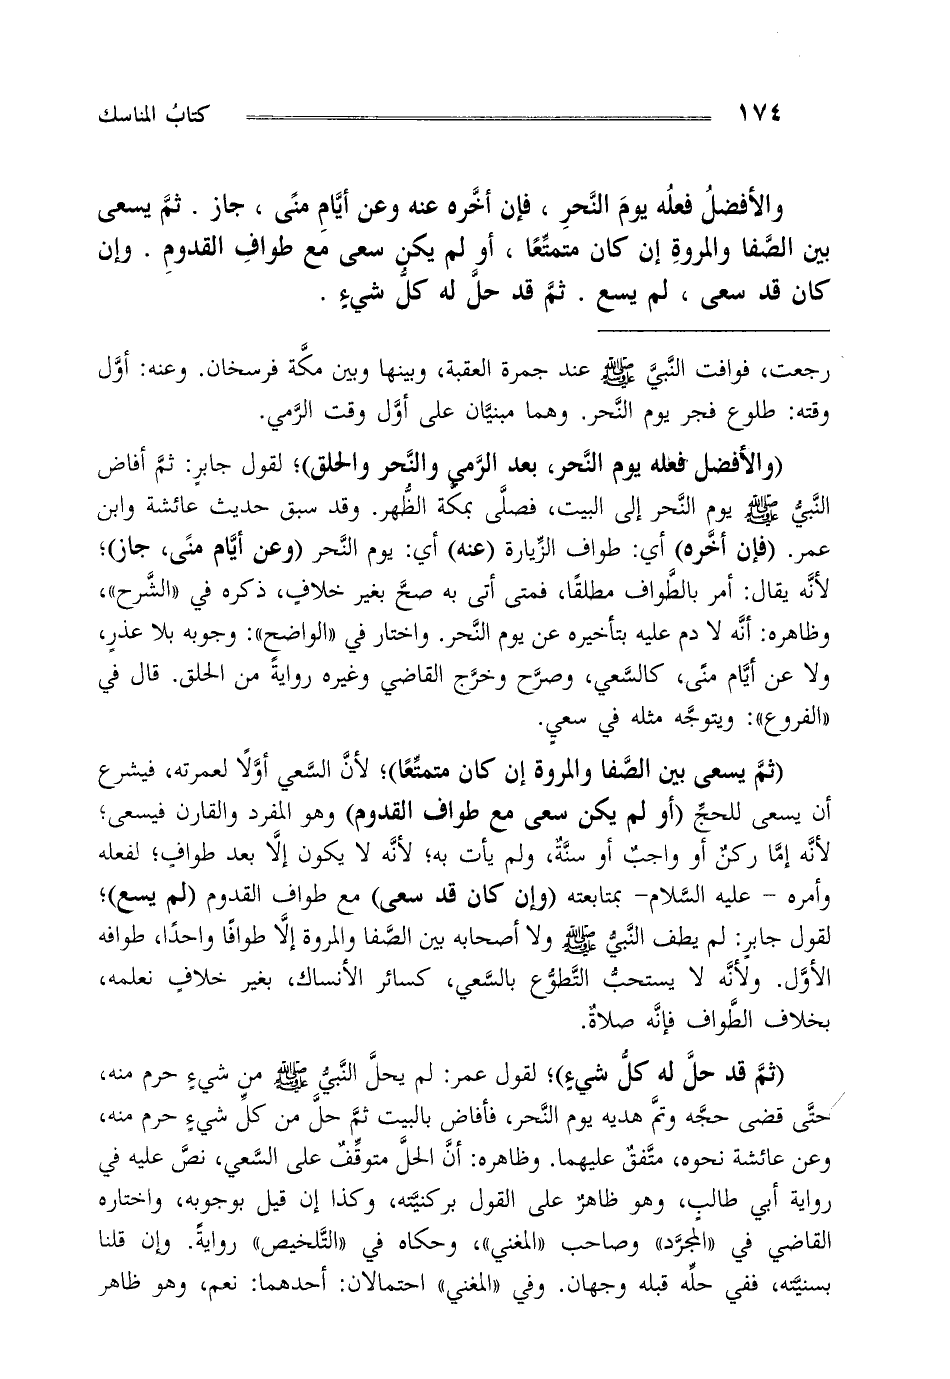 ١٧٤ كتابُ المناسك
والأفضلُ فعلُه يومَ النَّحرِ ، فإن أخَّره عنه وعن أيَّامِ منًى ، جاز . ثمَّ يسعى
بين الصَّفا والمروةِ إن كان متمتِّعًا ، أو لم يكن سعى مع طوافِ القدومِ . وإن
كان قد سعى ، لم يسع . ثمَّ قد حلَّ له كلُّ شيءٍ .
رجعت، فوافت النَّبيَّ ﷺ عند جمرة العقبة، وبينها وبين مكَّة فرسخان. وعنه: أوَّل
وقته: طلوع فجر يوم النَّحر. وهما مبنيَّان على أوَّل وقت الرَّمي.
(والأفضل فعله يوم النَّحر، بعد الرَّمي والنَّحر والحلق)؛ لقول جابرٍ: ثمَّ أفاض
النَّبيُّ ﷺ يوم النَّحر إلى البيت، فصلَّى بمكَّة الظُّهر. وقد سبق حديث عائشة وابن
عمر. (فإن أخَّره) أي: طواف الزِّيارة (عنه) أي: يوم النَّحر (وعن أيَّام منًى، جاز)؛
لأنَّه يقال: أمر بالطَّواف مطلقًا، فمتى أتى به صحَّ بغير خلافٍ، ذكره في «الشَّرح»،
وظاهره: أنَّه لا دم عليه بتأخيره عن يوم النَّحر. واختار في «الواضح»: وجوبه بلا عذرٍ،
ولا عن أيَّام منًى، كالسَّعي، وصرَّح وخرَّج القاضي وغيره روايةً من الحلق. قال في
«الفروع»: ويتوجَّه مثله في سعيٍ.
(ثمَّ يسعى بين الصَّفا والمروة إن كان متمتِّعًا)؛ لأنَّ السَّعي أوَّلًا لعمرته، فيشرع
أن يسعى للحجِّ (أو لم يكن سعى مع طواف القدوم) وهو المفرد والقارن فيسعى؛
لأنَّه إمَّا ركنٌ أو واجبٌ أو سنَّةٌ، ولم يأت به؛ لأنَّه لا يكون إلَّا بعد طوافٍ؛ لفعله
وأمره - عليه السَّلام- بمتابعته (وإن كان قد سعى) مع طواف القدوم (لم يسع)؛
لقول جابرٍ: لم يطف النَّبيُّ ﷺ ولا أصحابه بين الصَّفا والمروة إلَّا طوافًا واحدًا، طوافه
الأوَّل. ولأنَّه لا يستحبُّ التَّطوُّع بالسَّعي، كسائر الأنساك، بغير خلافٍ نعلمه،
بخلاف الطَّواف فإنَّه صلاةٌ.
(ثمَّ قد حلَّ له كلُّ شيءٍ)؛ لقول عمر: لم يحلَّ النَّبيُّ ﷺ من شيءٍ حرم منه،
حتَّى قضى حجَّه وتمَّ هديه يوم النَّحر، فأفاض بالبيت ثمَّ حلَّ من كلِّ شيءٍ حرم منه،
وعن عائشة نحوه، متَّفقٌ عليهما. وظاهره: أنَّ الحلَّ متوقِّفٌ على السَّعي، نصَّ عليه في
رواية أبي طالبٍ، وهو ظاهرٌ على القول بركنيَّته، وكذا إن قيل بوجوبه، واختاره
القاضي في «المجرَّد» وصاحب «المغني»، وحكاه في «التَّلخيص» روايةً. وإن قلنا
بسنيَّته، ففي حلِّه قبله وجهان. وفي «المغني» احتمالان: أحدهما: نعم، وهو ظاهر